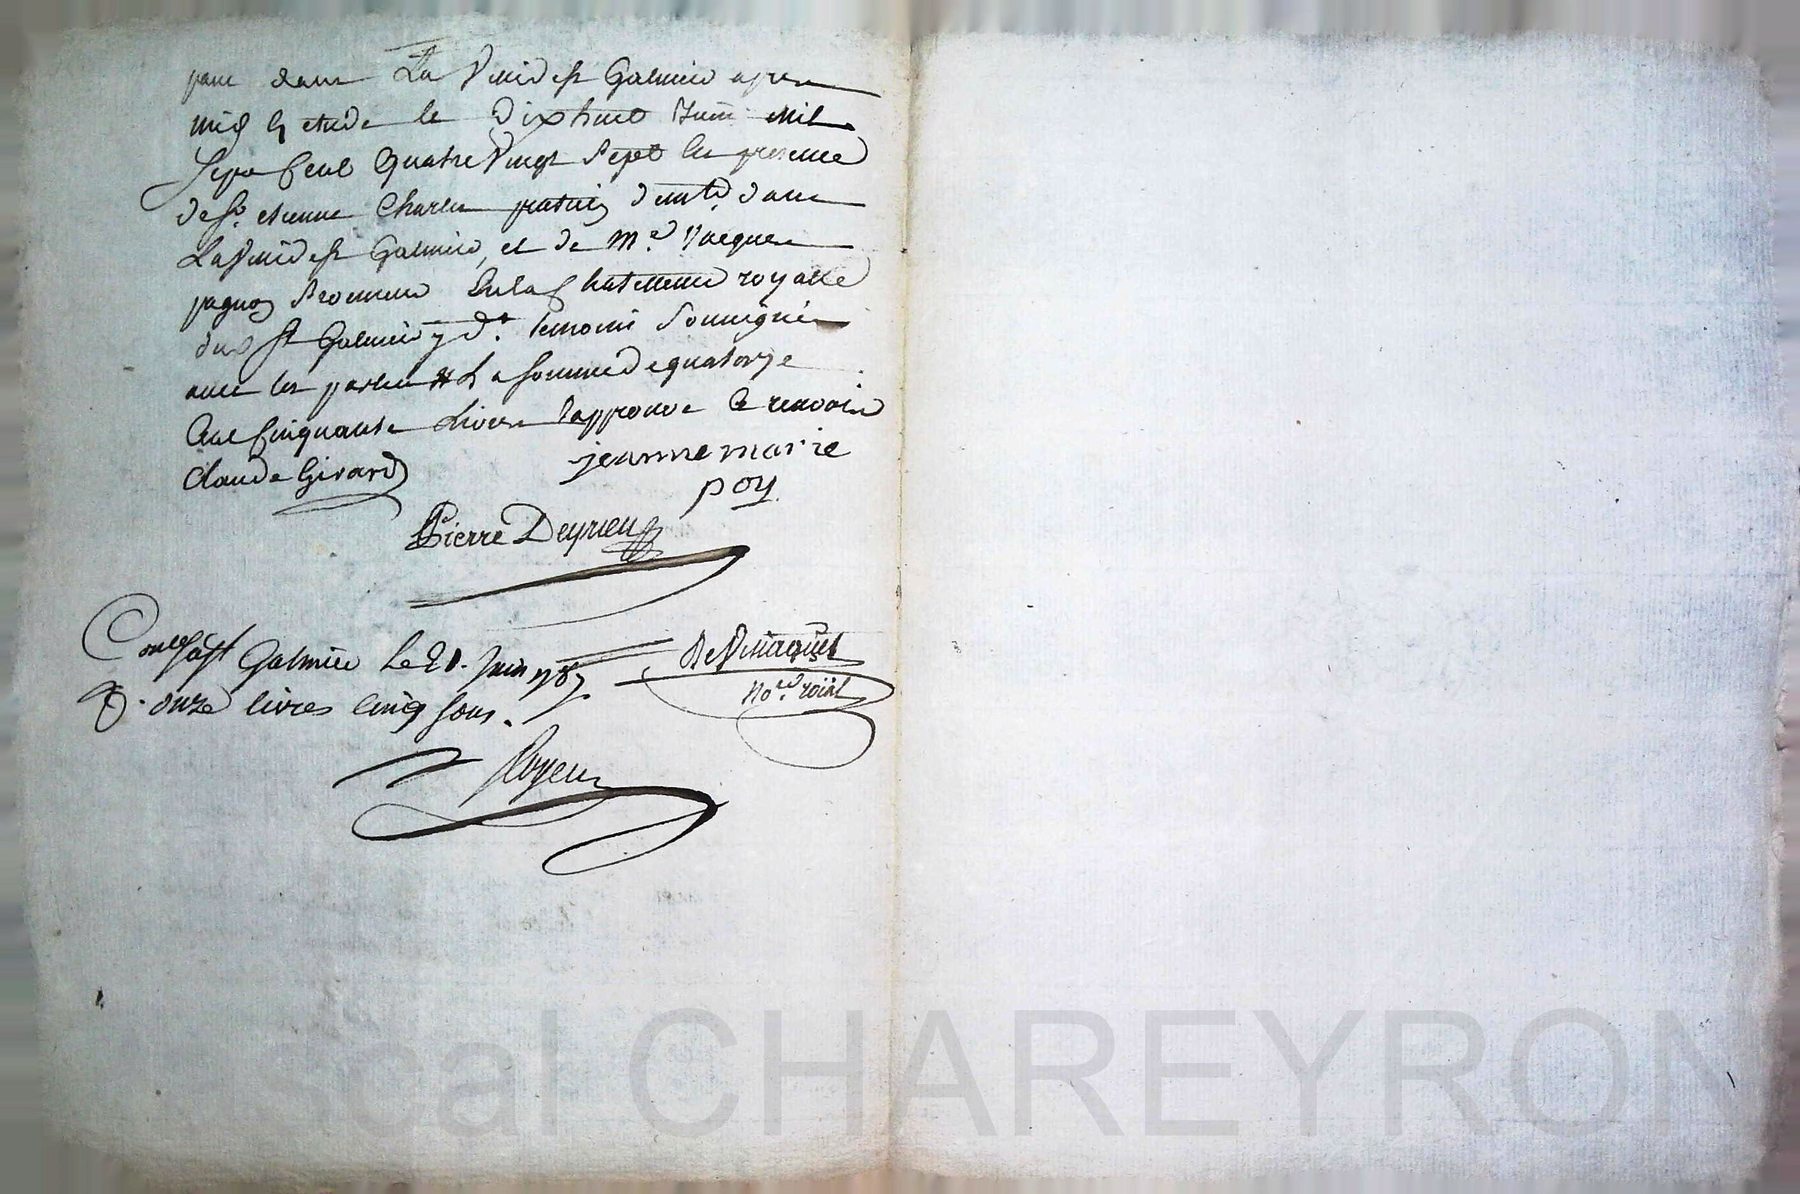 passé dans La Ville de St Galmier apres
midy en etude le Dix huit Juin Mil
Sept Cent Quatre Vingt Sept En presence
de Sr. etienne Charles praticien demt. dans
La Ville de St Galmier, et de Me. Jacques
procureur En la Chatellenie royalle
dud St Galmier y dt. temoins Soussignés
avec les parties # La Somme de quatorze
Cent Cinquante Livres J'approuve le renvoi
Claude Girard
jeanne marie
poy
Pierre Deyrieu
Conlé à St Galmier Le 21. Juin 1787
R. onze livres cinq sous.
Nore. roial
scal CHAREYRON